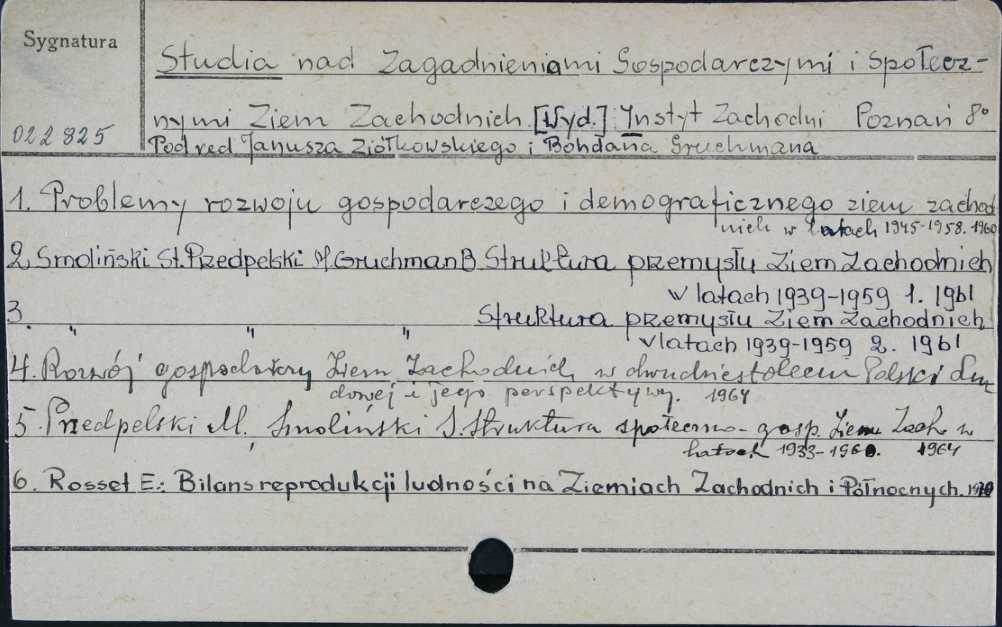 Sygnatura
Studia nad Zagadnieniami Gospodarczymi i Społecz-
nymi Ziem Zachodnich [Wyd.] Instyt Zachodni Poznań 8°
022825
Pod red Janusza Ziółkowskiego i Bohdana Gruchmana
1. Problemy rozwoju gospodarczego i demograficznego ziem zachod
nich w latach 1945-1958. 1960
2. Smoliński St. Przedpelski M. Gruchman B. Struktura przemysłu Ziem Zachodnich
w latach 1939-1959 1. 1961
3. " " " Struktura przemysłu Ziem Zachodnich
w latach 1939-1959 2. 1961
4. Rozwój gospodarczy Ziem Zachodnich w dwudziestoleciu Polski Lu
dowej i jego perspektywy. 1964
5. Przedpelski M., Smoliński S. Struktura społeczno-gosp. Ziem Zach w
latach 1933-1960. 1964
6. Rosset E.: Bilans reprodukcji ludności na Ziemiach Zachodnich i Północnych.